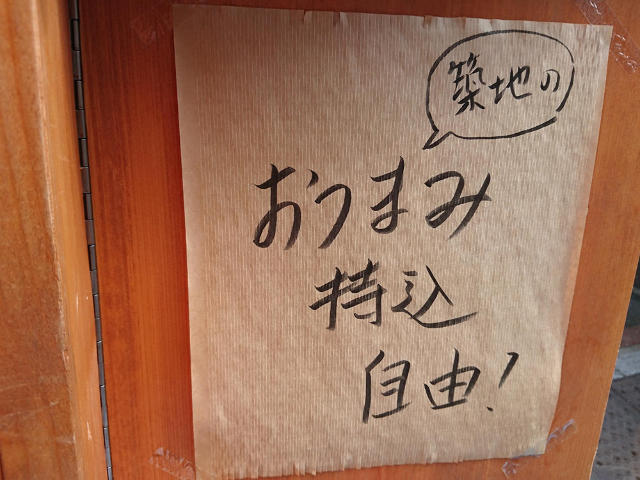 築地の
おつまみ
持込
自由!